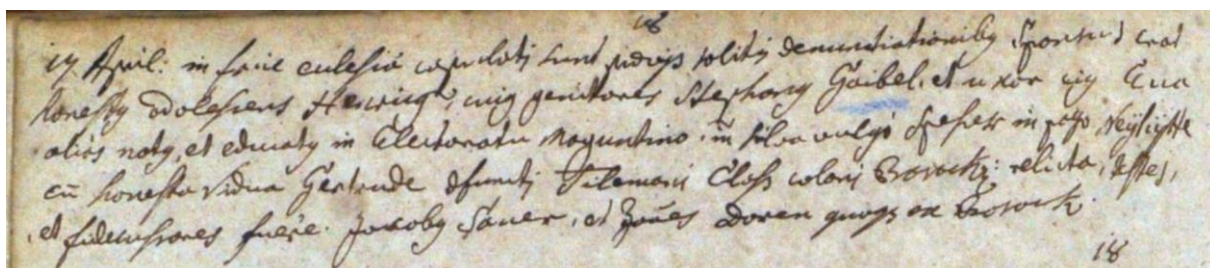 18
17 April: in facie ecclesiæ copulati sunt prævijs solitis denuntiationibus sponsus erat
honestus adolescens Henricus, cuius genitores Stephanus Gaibel, et uxor eius Eva
alias natus, et educatus in Electoratu Moguntino in silva vulgò Spessert in pago
cū honesta vidua Gertrude defuncti Tilemani Closs coloni relicta, testes,
et fideiussores fuêre. Jacobus Sauer, et Joñes Doren quoque ex
18